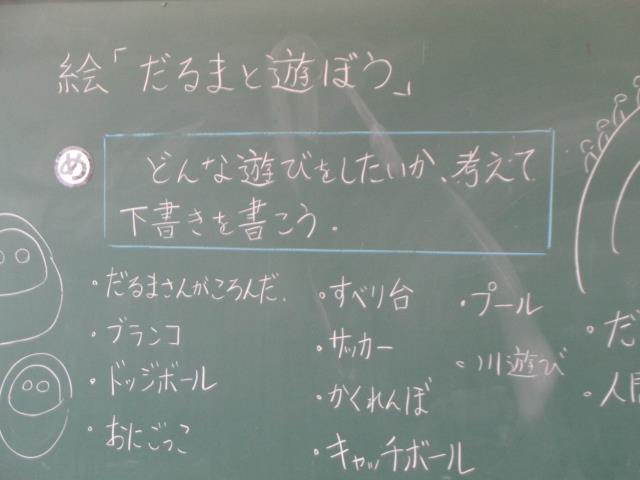 絵「だるまと遊ぼう」
め
どんな遊びをしたいか、考えて
下書きを書こう.
・だるまさんがころんだ.
・ブランコ
・ドッジボール
・おにごっこ
・すべり台
・サッカー
・かくれんぼ
・キャッチボール
・プール
・川遊び
・だ
・人